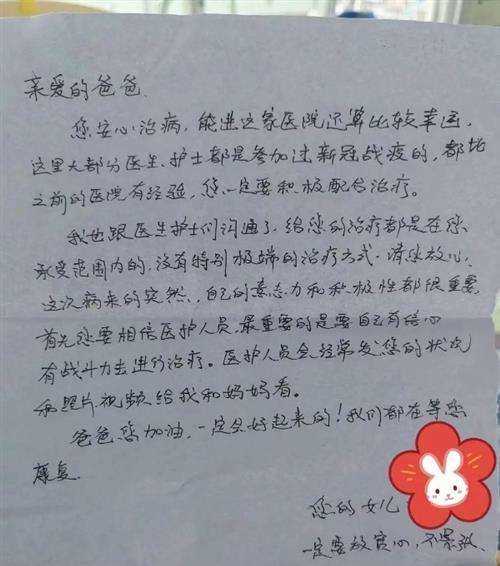 亲爱的爸爸
您安心治病,能进这家医院还算比较幸运,
这里大部分医生、护士都是参加过新冠战疫的,都比
之前的医院有经验,您一定要积极配合治疗。
我也跟医生护士们沟通了,给您的治疗都是在您
承受范围内的,没有特别极端的治疗方式,请您放心,
这次病来的突然,自己的意志力和积极性都很重要,
首先您要相信医护人员,最重要的是要自己有信心
有战斗力去进行治疗。医护人员会经常发您的状况
和照片视频给我和妈妈看。
爸爸您加油,一定会好起来的!我们都在等您
康复
您的女儿
一定要放宽心,不紧张.